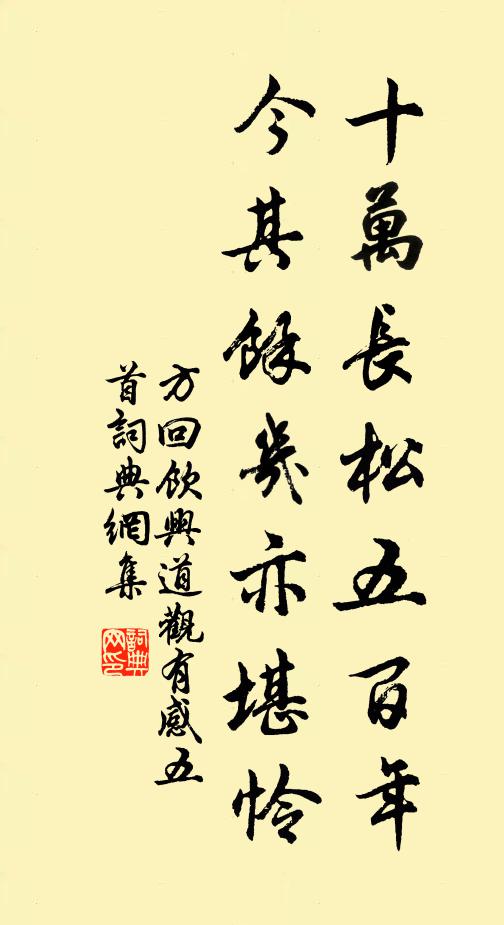 十萬長松五百年
今其餘幾亦堪怜
方回飲興道觀有感五
首詞典網集
詞典网印